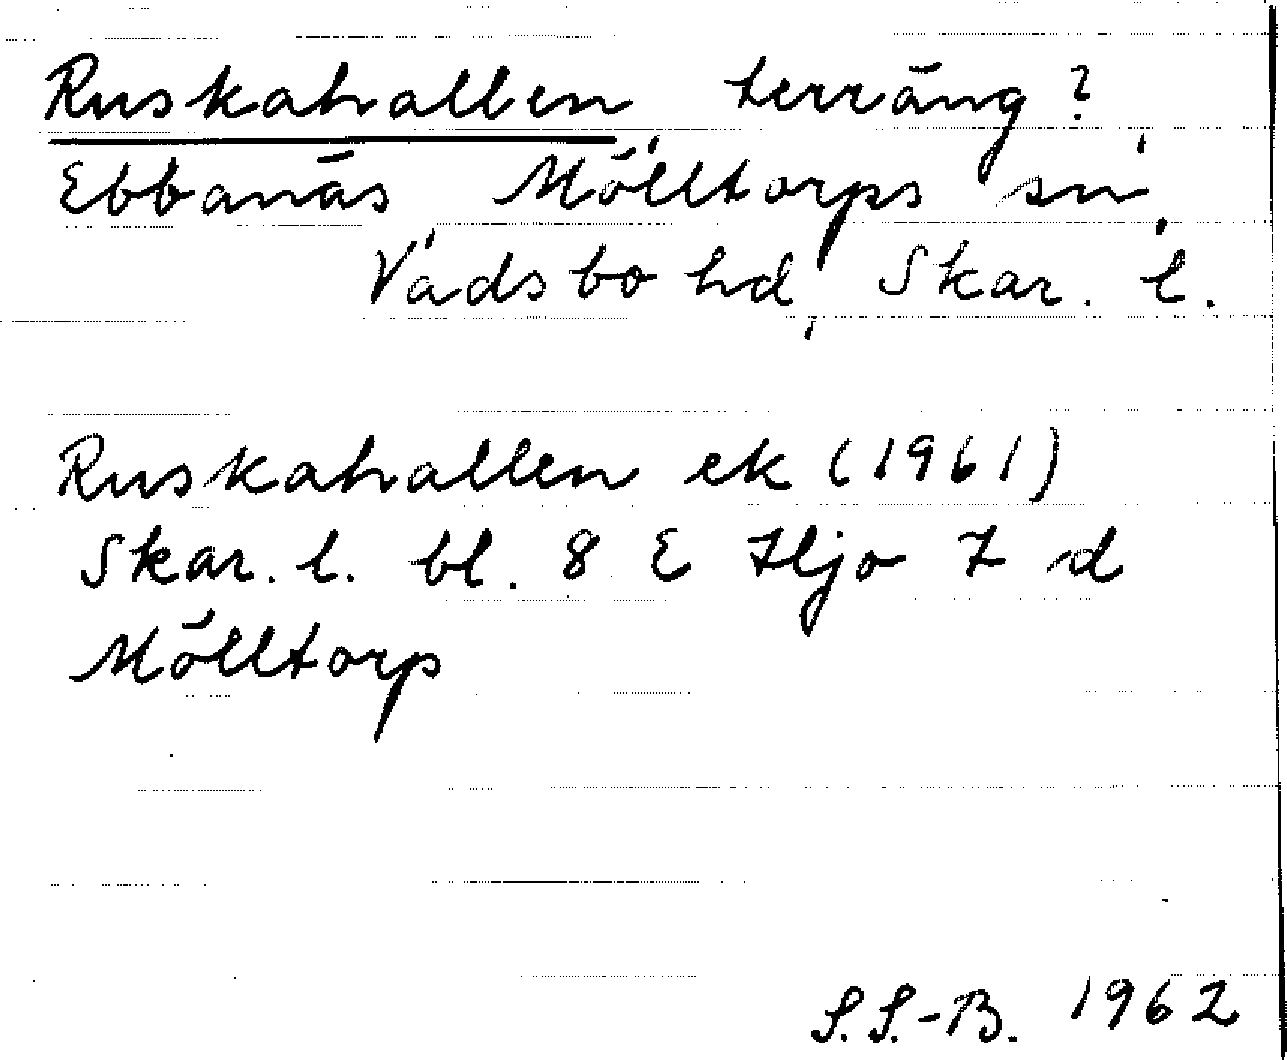 Ruskahallen terräng?
Ebbanäs Mölltorps sn
Vadsbo hd Skar. l.
Ruskahallen ek (1961)
Skar. l. bl. 8 E Hjo 7 d
Mölltorp
S.S.-B. 1962